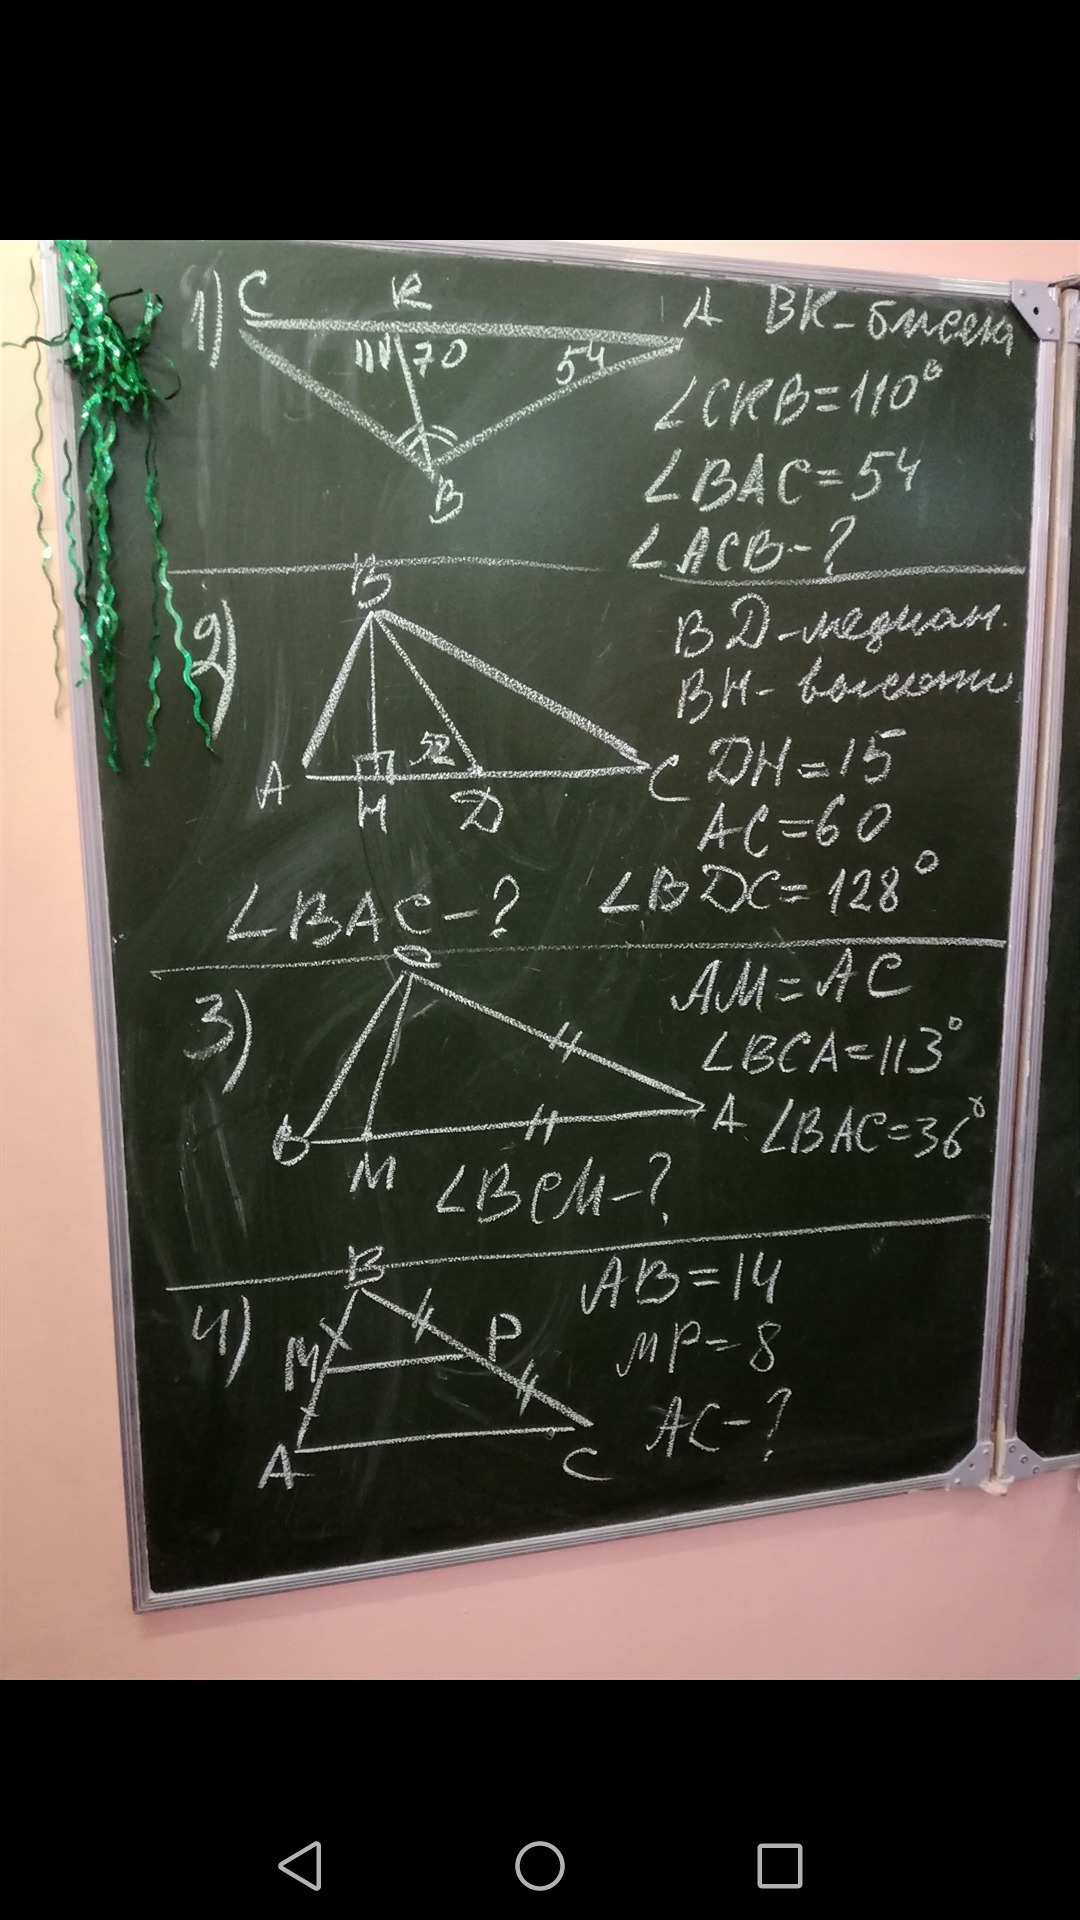 1)
C K A
110 70 54
B
BK - биссек
∠CKB=110°
∠BAC=54
∠ACB-?
2)
B
52
A H D C
BD - медиан.
BH - высота
DH=15
AC=60
∠BDC=128°
∠BAC-?
3)
C
B M A
AM=AC
∠BCA=113°
∠BAC=36°
∠BCM-?
4)
B
M P
A C
AB=14
MP=8
AC-?